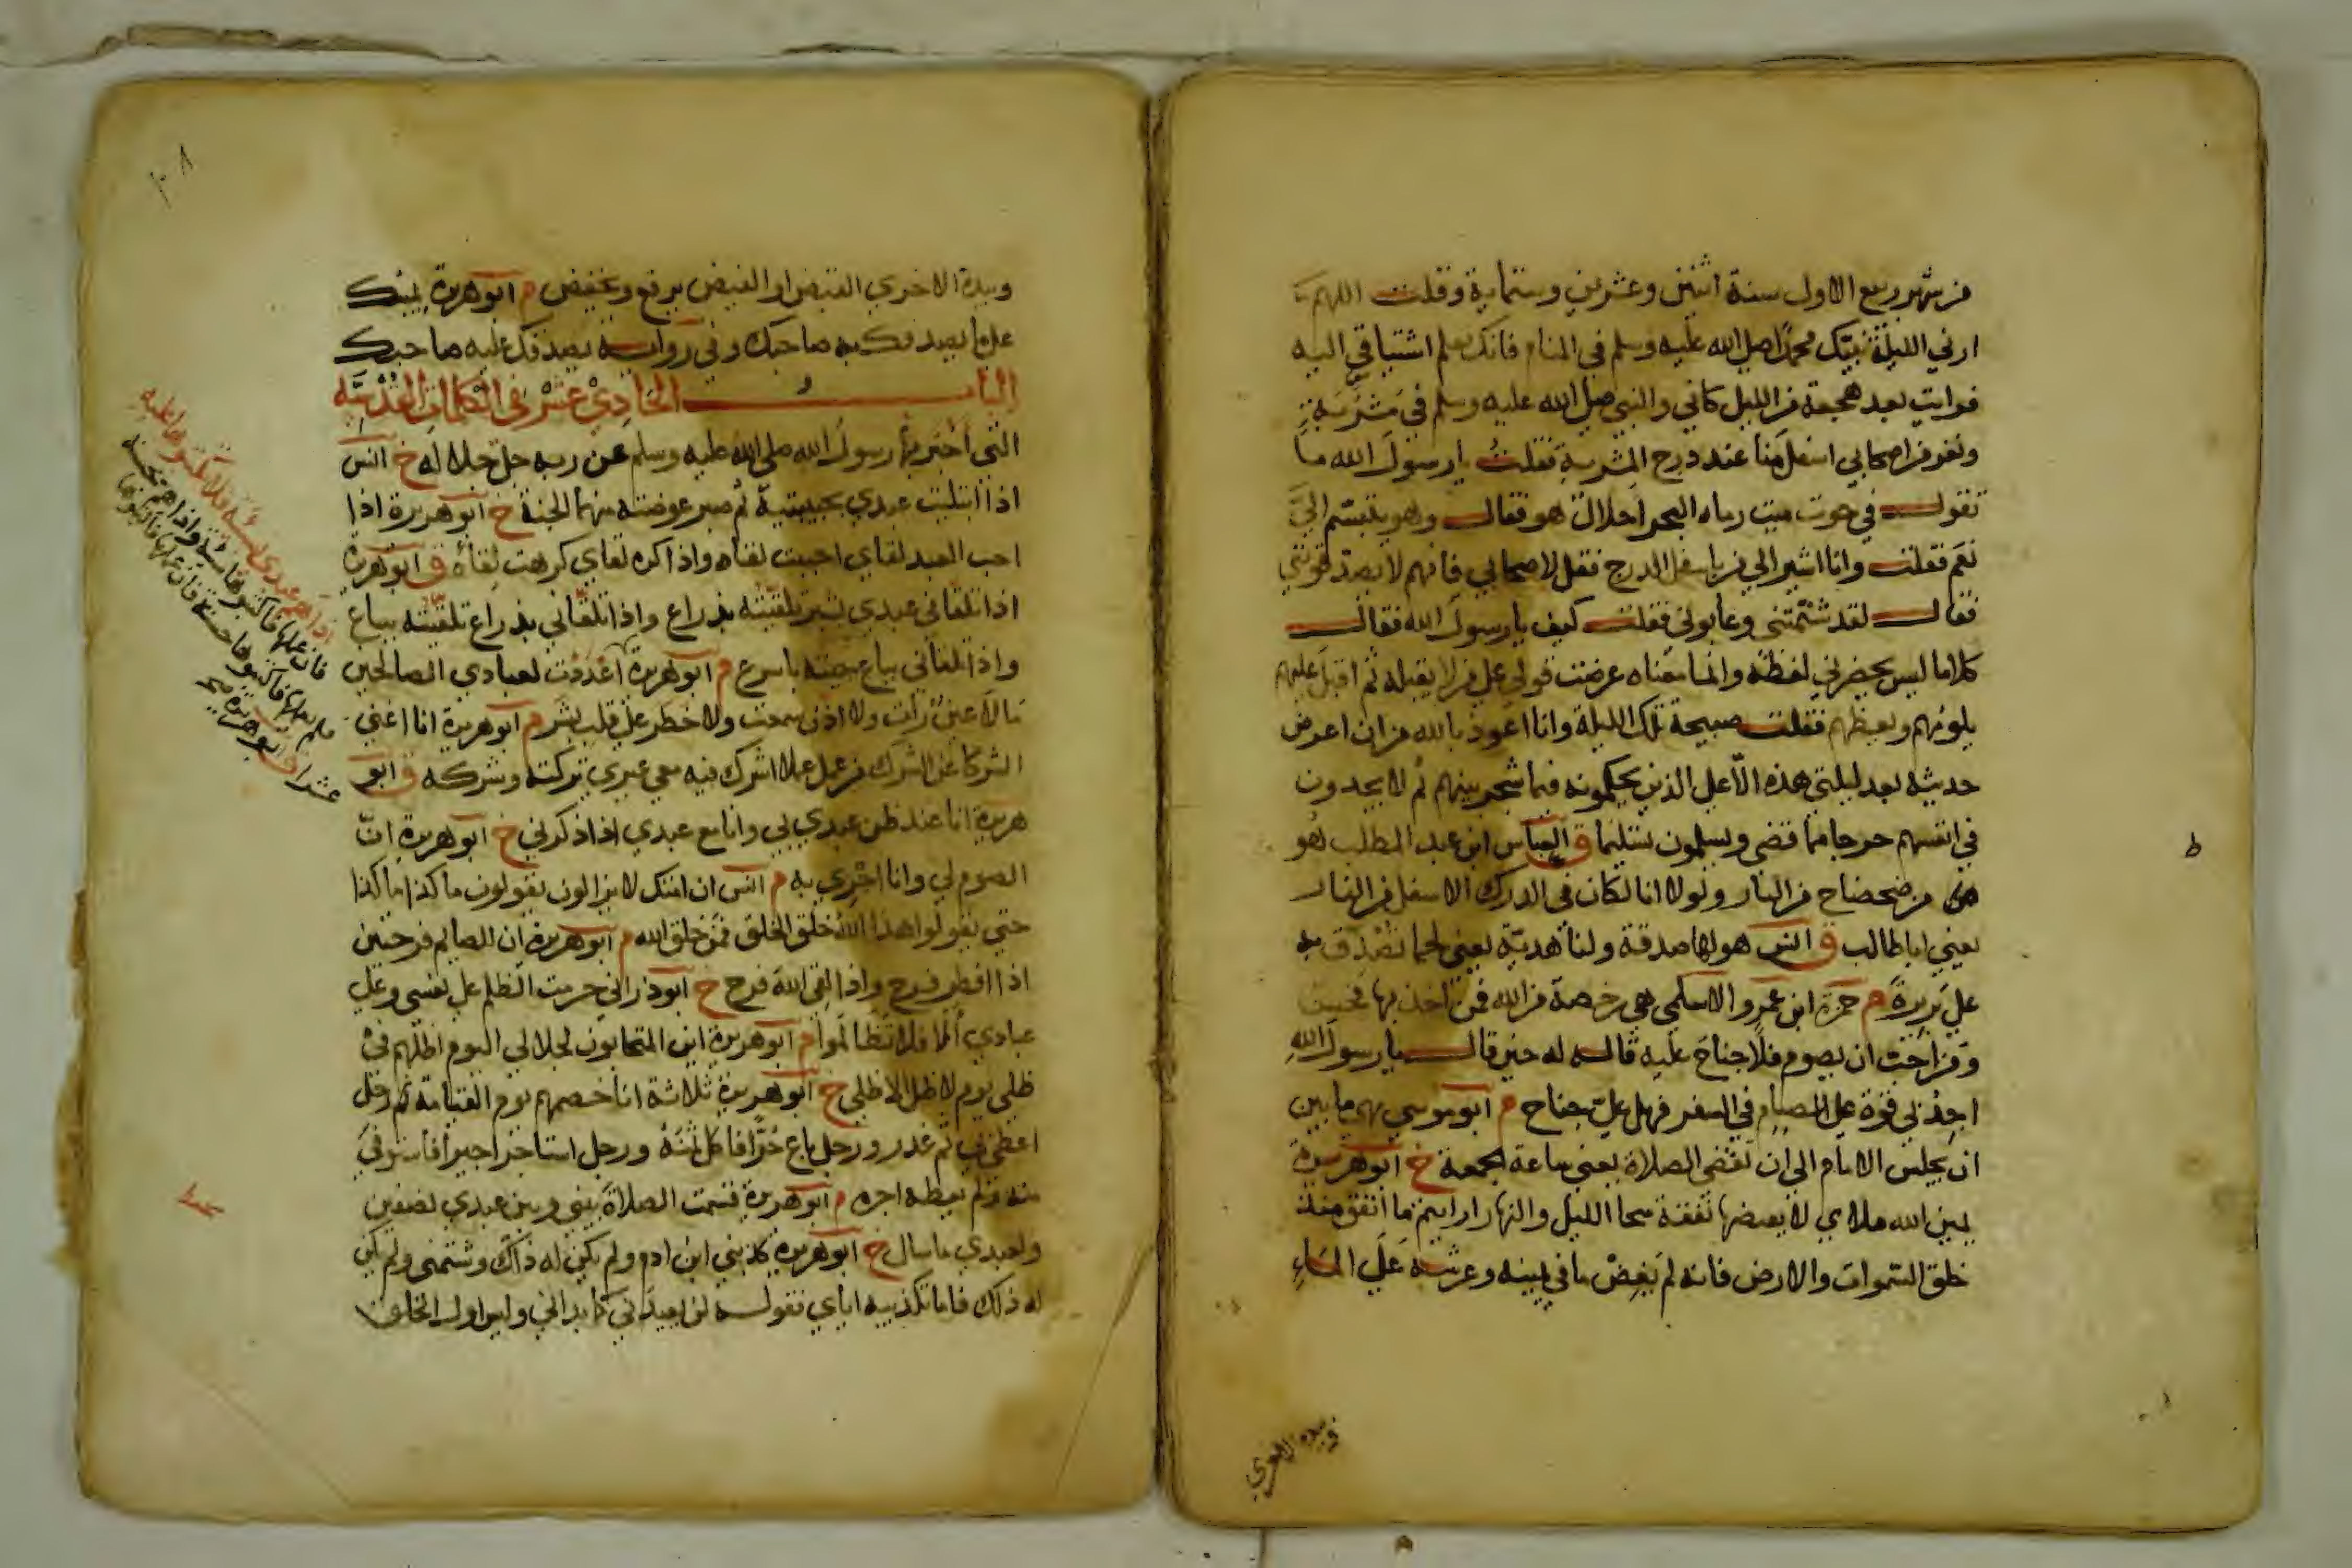 من شهر ربيع الاول سنة اثنتين وعشرين وستماية وقلت اللهم
ارني الليلة نبيك محمدا صلى الله عليه وسلم في المنام فانك تعلم اشتياقي اليه
فرايت بعد هجعة من الليل كاني والنبي صلى الله عليه وسلم في مشربة
ونفر من اصحابي اسفل منا عند درج المشربة فقلت يا رسول الله ما
تقول في حوت ميت رماه البحر احلال هو فقال وهو يتبسم الي
نعم فقلت وانا اشير الى من باسفل الدرج فقل لاصحابي فانهم لا يصدقونني
فقال لقد شتمتني وعابوني فقلت كيف يا رسول الله فقال
كلاما ليس يحضرني لفظه وانما معناه عرضت قولي على من لا يقبله ثم اقبل عليهم
يلومهم ويعظهم فقلت صبيحة تلك الليلة وانا اعوذ بالله من ان اعرض
حديثه بعد ليلتي هذه الا على الذين يحكمونه فيما شجر بينهم ثم لا يجدون
في انفسهم حرجا مما قضى ويسلمون تسليما ق العباس ابن عبد المطلب هو
في ضحضاح من النار ولولا انا لكان في الدرك الاسفل من النار
يعني ابا طالب ق انس هو لها صدقة ولنا هدية يعني لحما تصدق به
على بريرة م حمزة ابن عمرو الاسلمي هي رخصة من الله فمن اخذ بها فحسن
ومن احب ان يصوم فلا جناح عليه قاله له حين قال يا رسول الله
اجد لي قوة على الصيام في السفر فهل علي جناح م ابو موسى هي ما بين
ان يجلس الامام الى ان تقضى الصلاة يعني ساعة الجمعة خ ابو هريرة
يمين الله ملاي لا يغيضها نفقة سحا الليل والنهار ارايتم ما انفق منذ
خلق السموات والارض فانه لم يغض ما في يمينه وعرشه على الماء
وبيده الاخرى
وبيده الاخري الفيض او القبض يرفع ويخفض م ابو هريرة يمينك
على ما يصدقك به صاحبك وفي رواية يصدقك عليه صاحبك
الباب الحادي عشر في الكلمات القدسية
التي اخبر بها رسول الله صلى الله عليه وسلم عن ربه جل جلاله خ انس
اذا ابتليت عبدي بحبيبتيه ثم صبر عوضته منهما الجنة خ ابو هريرة اذا
احب العبد لقاي احببت لقاه واذا كره لقاي كرهت لقاه ق ابو هريرة
اذا تلقاني عبدي بشبر تلقيته بذراع واذا تلقاني بذراع تلقيته بباع
واذا تلقاني بباع جيته باسرع م ابو هريرة اعددت لعبادي الصالحين
ما لا عين رات ولا اذن سمعت ولا خطر على قلب بشر م ابو هريرة انا اغنى
الشركا عن الشرك من عمل عملا اشرك فيه معي غيري تركته وشركه ق ابو
هريرة انا عند ظن عبدي بي وانا مع عبدي اذا ذكرني خ ابو هريرة ان
الصوم لي وانا اجزي به م انس ان امتك لا يزالون يقولون ما كذا ما كذا
حتى يقولوا هذا الله خلق الخلق فمن خلق الله م ابو هريرة ان للصايم فرحتين
اذا افطر فرح واذا لقي الله فرح خ ابو ذر اني حرمت الظلم على نفسي وعلى
عبادي الا فلا تظالموا م ابو هريرة اين المتحابون لجلالي اليوم اظلهم في
ظلي يوم لا ظل الا ظلي خ ابو هريرة ثلاثة انا خصمهم يوم القيامة رجل
اعطى بي ثم غدر ورجل باع حرا فاكل ثمنه ورجل استاجر اجيرا فاستوفى
منه ولم يعطه اجره م ابو هريرة قسمت الصلاة بيني وبين عبدي نصفين
ولعبدي ما سال خ ابو هريرة كذبني ابن ادم ولم يكن له ذلك وشتمني ولم يكن
له ذلك فاما تكذيبه اياي فقوله لن يعيدني كما بداني وليس اول الخلق
اذا هم عبدي بسيئة فلا تكتبوها عليه
فان عملها فاكتبوها سيئة واذا هم بحسنة
فلم يعملها فاكتبوها حسنة فان عملها فاكتبوها
عشرا ق ابو هريرة صح